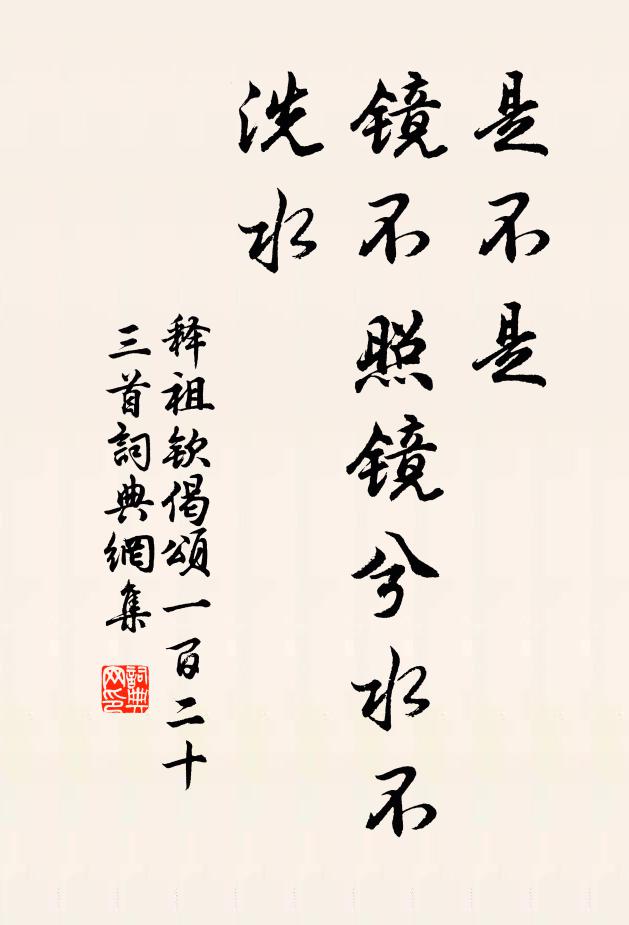 是不是
镜不照镜兮水不
洗水
释祖钦偈颂一百二十
三首詞典網集
詞典网印